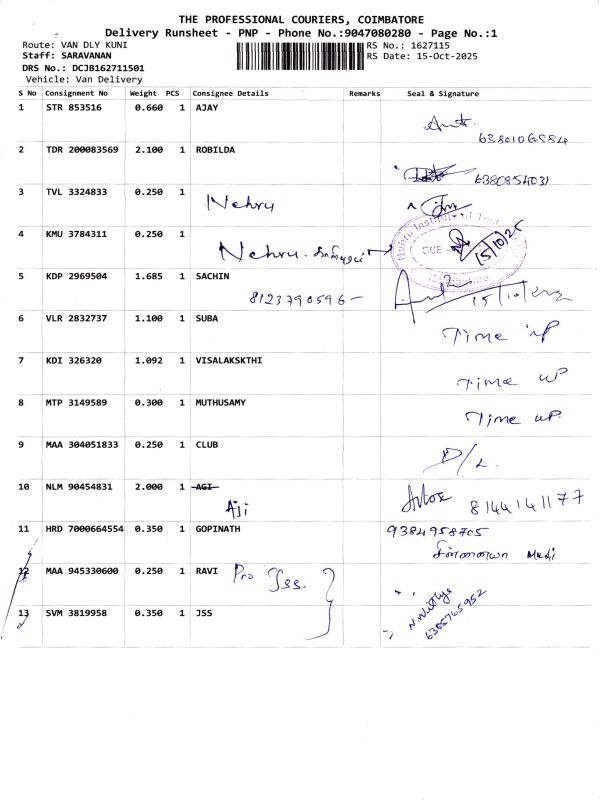 THE PROFESSIONAL COURIERS, COIMBATORE
Delivery Runsheet - PNP - Phone No.:9047080280 - Page No.:1
Route: VAN DLY KUNI RS No.: 1627115
Staff: SARAVANAN RS Date: 15-Oct-2025
DRS No.: DCJB162711501
Vehicle: Van Delivery
S No Consignment No Weight PCS Consignee Details Remarks Seal & Signature
1 STR 853516 0.660 1 AJAY
2 TDR 200083569 2.100 1 ROBILDA
6380854031
3 TVL 3324833 0.250 1
Nehru
4 KMU 3784311 0.250 1
Nehru
15/10/25
5 KDP 2969504 1.685 1 SACHIN
8123790596
6 VLR 2832737 1.100 1 SUBA
Time UP
7 KDI 326320 1.092 1 VISALAKSKTHI
Time UP
8 MTP 3149589 0.300 1 MUTHUSAMY
Time UP
9 MAA 304051833 0.250 1 CLUB
D/L
10 NLM 90454831 2.000 1 AGI
Aji
8144141177
11 HRD 7000664554 0.350 1 GOPINATH 9384958705
12 MAA 945330600 0.250 1 RAVI Pro Jss
13 SVM 3819958 0.350 1 JSS
6385765952